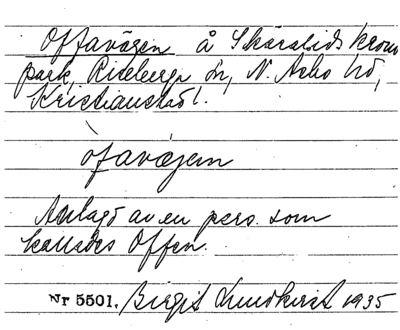 Offavägen å Skäralids krono
park, Riseberga sn, N. Åsbo hd,
Kristianstads l.
òfavę̀gem
Anlagd av en pers. som
kallades Offen.
Nr 5501. Birgit Lundkvist 1935